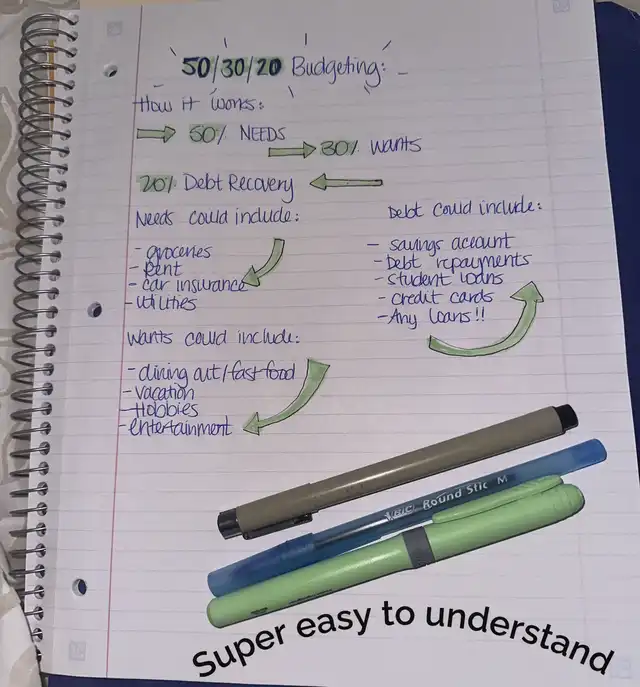 50/30/20 Budgeting:
How it works:
50% NEEDS
30% Wants
20% Debt Recovery
Needs could include:
- groceries
- Rent
- car insurance
- utilities
Debt could include:
- savings account
- Debt repayments
- Student loans
- credit cards
- Any loans!!
Wants could include:
- dining out/fast food
- vacation
- Hobbies
- entertainment
BIC Round Stic M
Super easy to understand